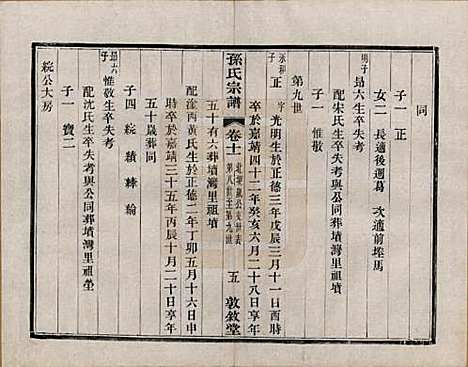 同
子一 正
女二 長適後週葛 次適前垤馬
勗六生卒失考
配宋氏生卒失考與公同葬墳灣里祖塋
子一 惟敬
第九世
永和子
正 字光明生於正德三年戊辰三月十一日酉時
卒於嘉靖四十二年癸亥六月二十八日享年
孫氏宗譜 卷十一
第八世至第九世
五 敦敘堂
五十有六葬墳灣里祖墳
配涂西黃氏生於正德二年丁卯五月十六日申
時卒於嘉靖三十五年丙辰十月二十日享年
五十歲葬同
子四 綂 績 綸
勗六子
惟敬生卒失考
配沈氏生卒失考與公同葬墳灣里祖塋
子一 寶二
綂公大房